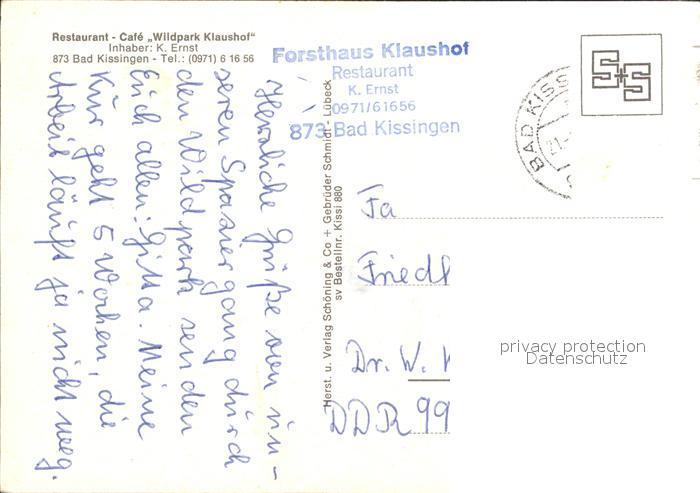 Restaurant - Café „Wildpark Klaushof“
Inhaber: K. Ernst
873 Bad Kissingen - Tel.: (0971) 6 16 56
Forsthaus Klaushof
Restaurant
K. Ernst
0971/61656
873 Bad Kissingen
Herzliche Grüße von un-
seren Spaziergang durch
den Wildpark senden
Euch allen: Gitta. Meine
Kur geht 5 Wochen, die
Arbeit läuft ja nicht weg.
Herst. u. Verlag Schöning & Co + Gebrüder Schmidt - Lübeck
sv Bestellnr. Kissi 880
BAD KISS
21.
S+S
Fa
Friedl
Dr. W.
DDR 99
privacy protection
Datenschutz